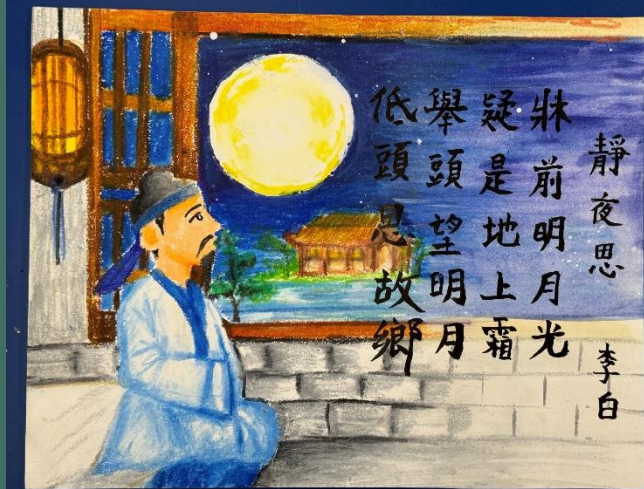 靜夜思
李白
牀前明月光
疑是地上霜
舉頭望明月
低頭思故鄉